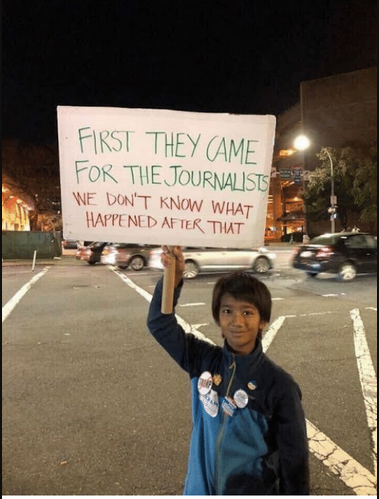 FIRST THEY CAME
FOR THE JOURNALISTS
WE DON'T KNOW WHAT
HAPPENED AFTER THAT